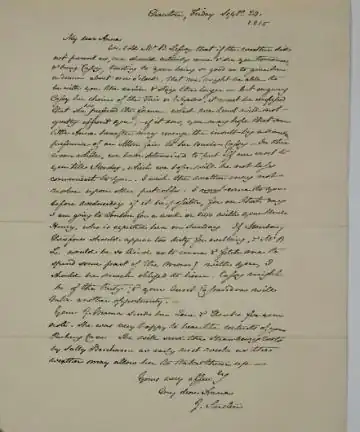 Chawton, Friday Sept: 29.
1815
My dear Anna
We told Mr B. Lefroy that if the weather did
not prevent us, we should certainly come & see you tomorrow,
& bring Cassy, trusting to your being so good as to give her
a dinner about one o'clock, that we might be able to
be with you the earlier & stay the longer - but on giving
Cassy her choice of the Fair or Wyards, it must be confessed
that she has preferred the former, which we trust will not
greatly affront you; - if it does, you may hope that some
little Anna hereafter may revenge the insult by a similar
preference of an Alton fair to her Cousin Cassy. - In the
mean while, we have determined to put off our visit to
you till Monday, which we hope will be not less
convenient to you. - I wish the weather may not
resolve upon other put-offs. I must come to you
before Wednesday if it be possible, for on that day
I am going to London for a week or two with your Uncle
Henry, who is expected here on Sunday. If Monday
therefore should appear too dirty for walking, & Mr B.
L. would be so kind as to come & fetch me to
spend some part of the morng with you, I
should be much obliged to him. Cassy might
be of the Party, & your Aunt Cassandra will
take another opportunity. -
Your G. Mama sends her Love & Thanks for your
note. She was very happy to hear the contents of your
Packing Case. - She will send the Strawberry roots
by Sally Benham as early next week as the
weather may allow her to take them up. -
Yours very affec:ly
My dear Anna
J. Austen